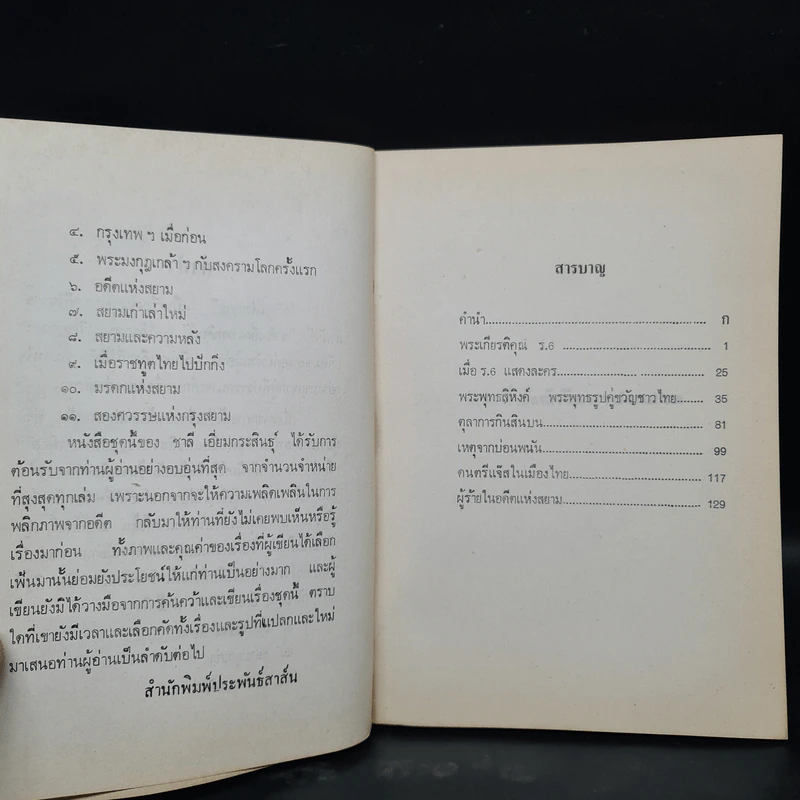 ๔. กรุงเทพ ฯ เมื่อก่อน
๕. พระมงกุฎเกล้า ฯ กับสงครามโลกครั้งแรก
๖. อดีตแห่งสยาม
๗. สยามเก่าเล่าใหม่
๘. สยามและความหลัง
๙. เมื่อราชทูตไทยไปปักกิ่ง
๑๐. มรดกแห่งสยาม
๑๑. สองศวรรษแห่งกรุงสยาม
หนังสือชุดนี้ของ ชาลี เอี่ยมกระสินธุ์ ได้รับการ
ต้อนรับจากท่านผู้อ่านอย่างอบอุ่นที่สุด จากจำนวนจำหน่าย
ที่สูงสุดทุกเล่ม เพราะนอกจากจะให้ความเพลิดเพลินในการ
พลิกภาพจากอดีต กลับมาให้ท่านที่ยังไม่เคยพบเห็นหรือรู้
เรื่องมาก่อน ทั้งภาพและคุณค่าของเรื่องที่ผู้เขียนได้เลือก
เฟ้นมานั้นย่อมยังประโยชน์ให้แก่ท่านเป็นอย่างมาก และผู้
เขียนยังมิได้วางมือจากการค้นคว้าและเขียนเรื่องชุดนี้ ตราบ
ใดที่เขายังมีเวลาและเลือกคัดทั้งเรื่องและรูปที่แปลกและใหม่
มาเสนอท่านผู้อ่านเป็นลำดับต่อไป
สำนักพิมพ์ประพันธ์สาส์น
สารบาญ
คำนำ........................................................ ก
พระเกียรติคุณ ร.6 ........................................ 1
เมื่อ ร.6 แสดงละคร........................................ 25
พระพุทธสิหิงค์ พระพุทธรูปคู่ขวัญชาวไทย....... 35
ตุลาการกินสินบน........................................ 81
เหตุจากบ่อนพนัน........................................ 99
ดนตรีแจ๊สในเมืองไทย.................................. 117
ผู้ร้ายในอดีตแห่งสยาม.................................. 129